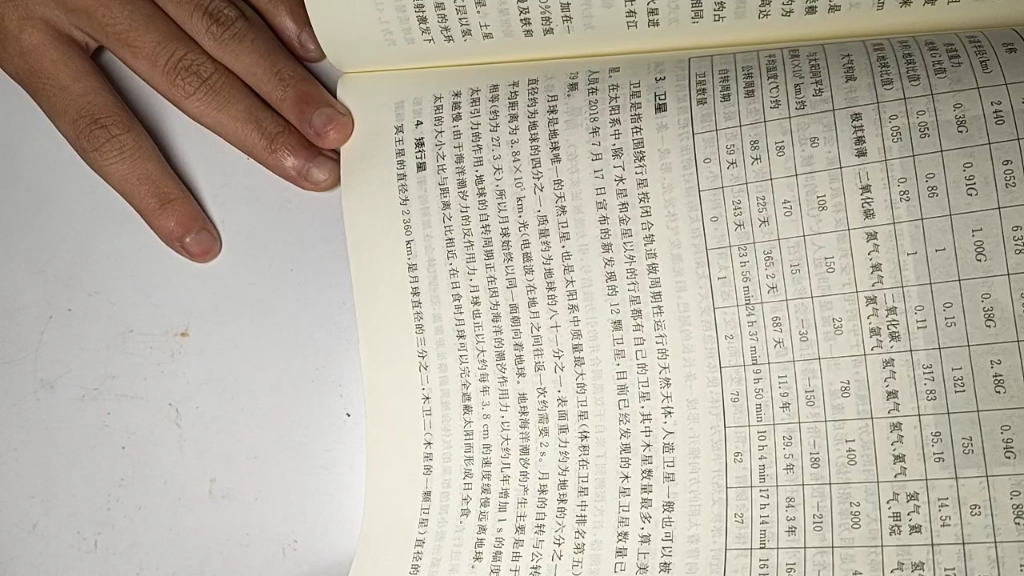 加在一
0%的氢
及铁和
星。土星
层以氢、
星的光环
射激发下
火星进
上有江
约占
相同；
是
类赖
约为
高达
名称
赤道半径(km)
2 440
6 052
6 378
0.38G
0.91G
1.00G
0.38G
2.48G
0.94G
0.89G
0.056
0.86
1
0.15
1321
755
63
0.055
0.82
1
0.11
317.83
95.16
14.54
大气构成
极其稀薄
二氧化碳
氮气、氧气
二氧化碳、氮气、氩气
氢气、氦气
氢气、氦气
氢气、氦气、甲烷
与太阳间平均
60
108
150
230
780
1 400
2 900
平均温度(℃)约
180
470
15
-30
-150
-180
-210
公转周期
88天
225天
365.2天
687天
11.9年
29.5年
84.3年
自转周期
59天
243天
23 h 56 min
24 h 37 min
9 h 50 min
10 h 4 min
17 h 14 min
卫星数量
0
0
1
2
79
62
27
3. 卫星
卫星是指在围绕行星按闭合轨道做周期性运行的天然天体,人造卫星一般也可以被
星。在太阳系中,除了水星和金星以外的行星都有自己的卫星,其中木星数量最多,算上美
人员在2018年7月17日宣布的新发现的12颗卫星,目前已经发现的木星卫星数量已
79颗。
月球是地球唯一的天然卫星,也是太阳系中质量最大的卫星(体积在卫星中排名第五)
直径约为地球的四分之一,质量约为地球的八十一分之一,表面重力约为地球的六分之一
平均距离为3.84×10⁵ km,光(电磁波)在地月之间往返一次约需要2 s。月球的自转与公转
相等(约为27.3天),所以月球始终以同一面朝向着地球。地球海洋潮汐的产生主要是由于
太阳引力的作用,地球的自转周期正在因为海洋的潮汐作用力,以大约几年增加1 s的幅度
来越慢;由于海洋潮汐力的反作用力,月球也正以大约每年3.8 cm的速度缓慢远离地球。
太阳的大小之比与距离之比相近,在日食时月球可以完全遮蔽太阳而形成日全食。
4. 矮行星
冥王星的直径为2 360 km,是月球直径的三分之二,木卫二(木星的一颗卫星)直径的